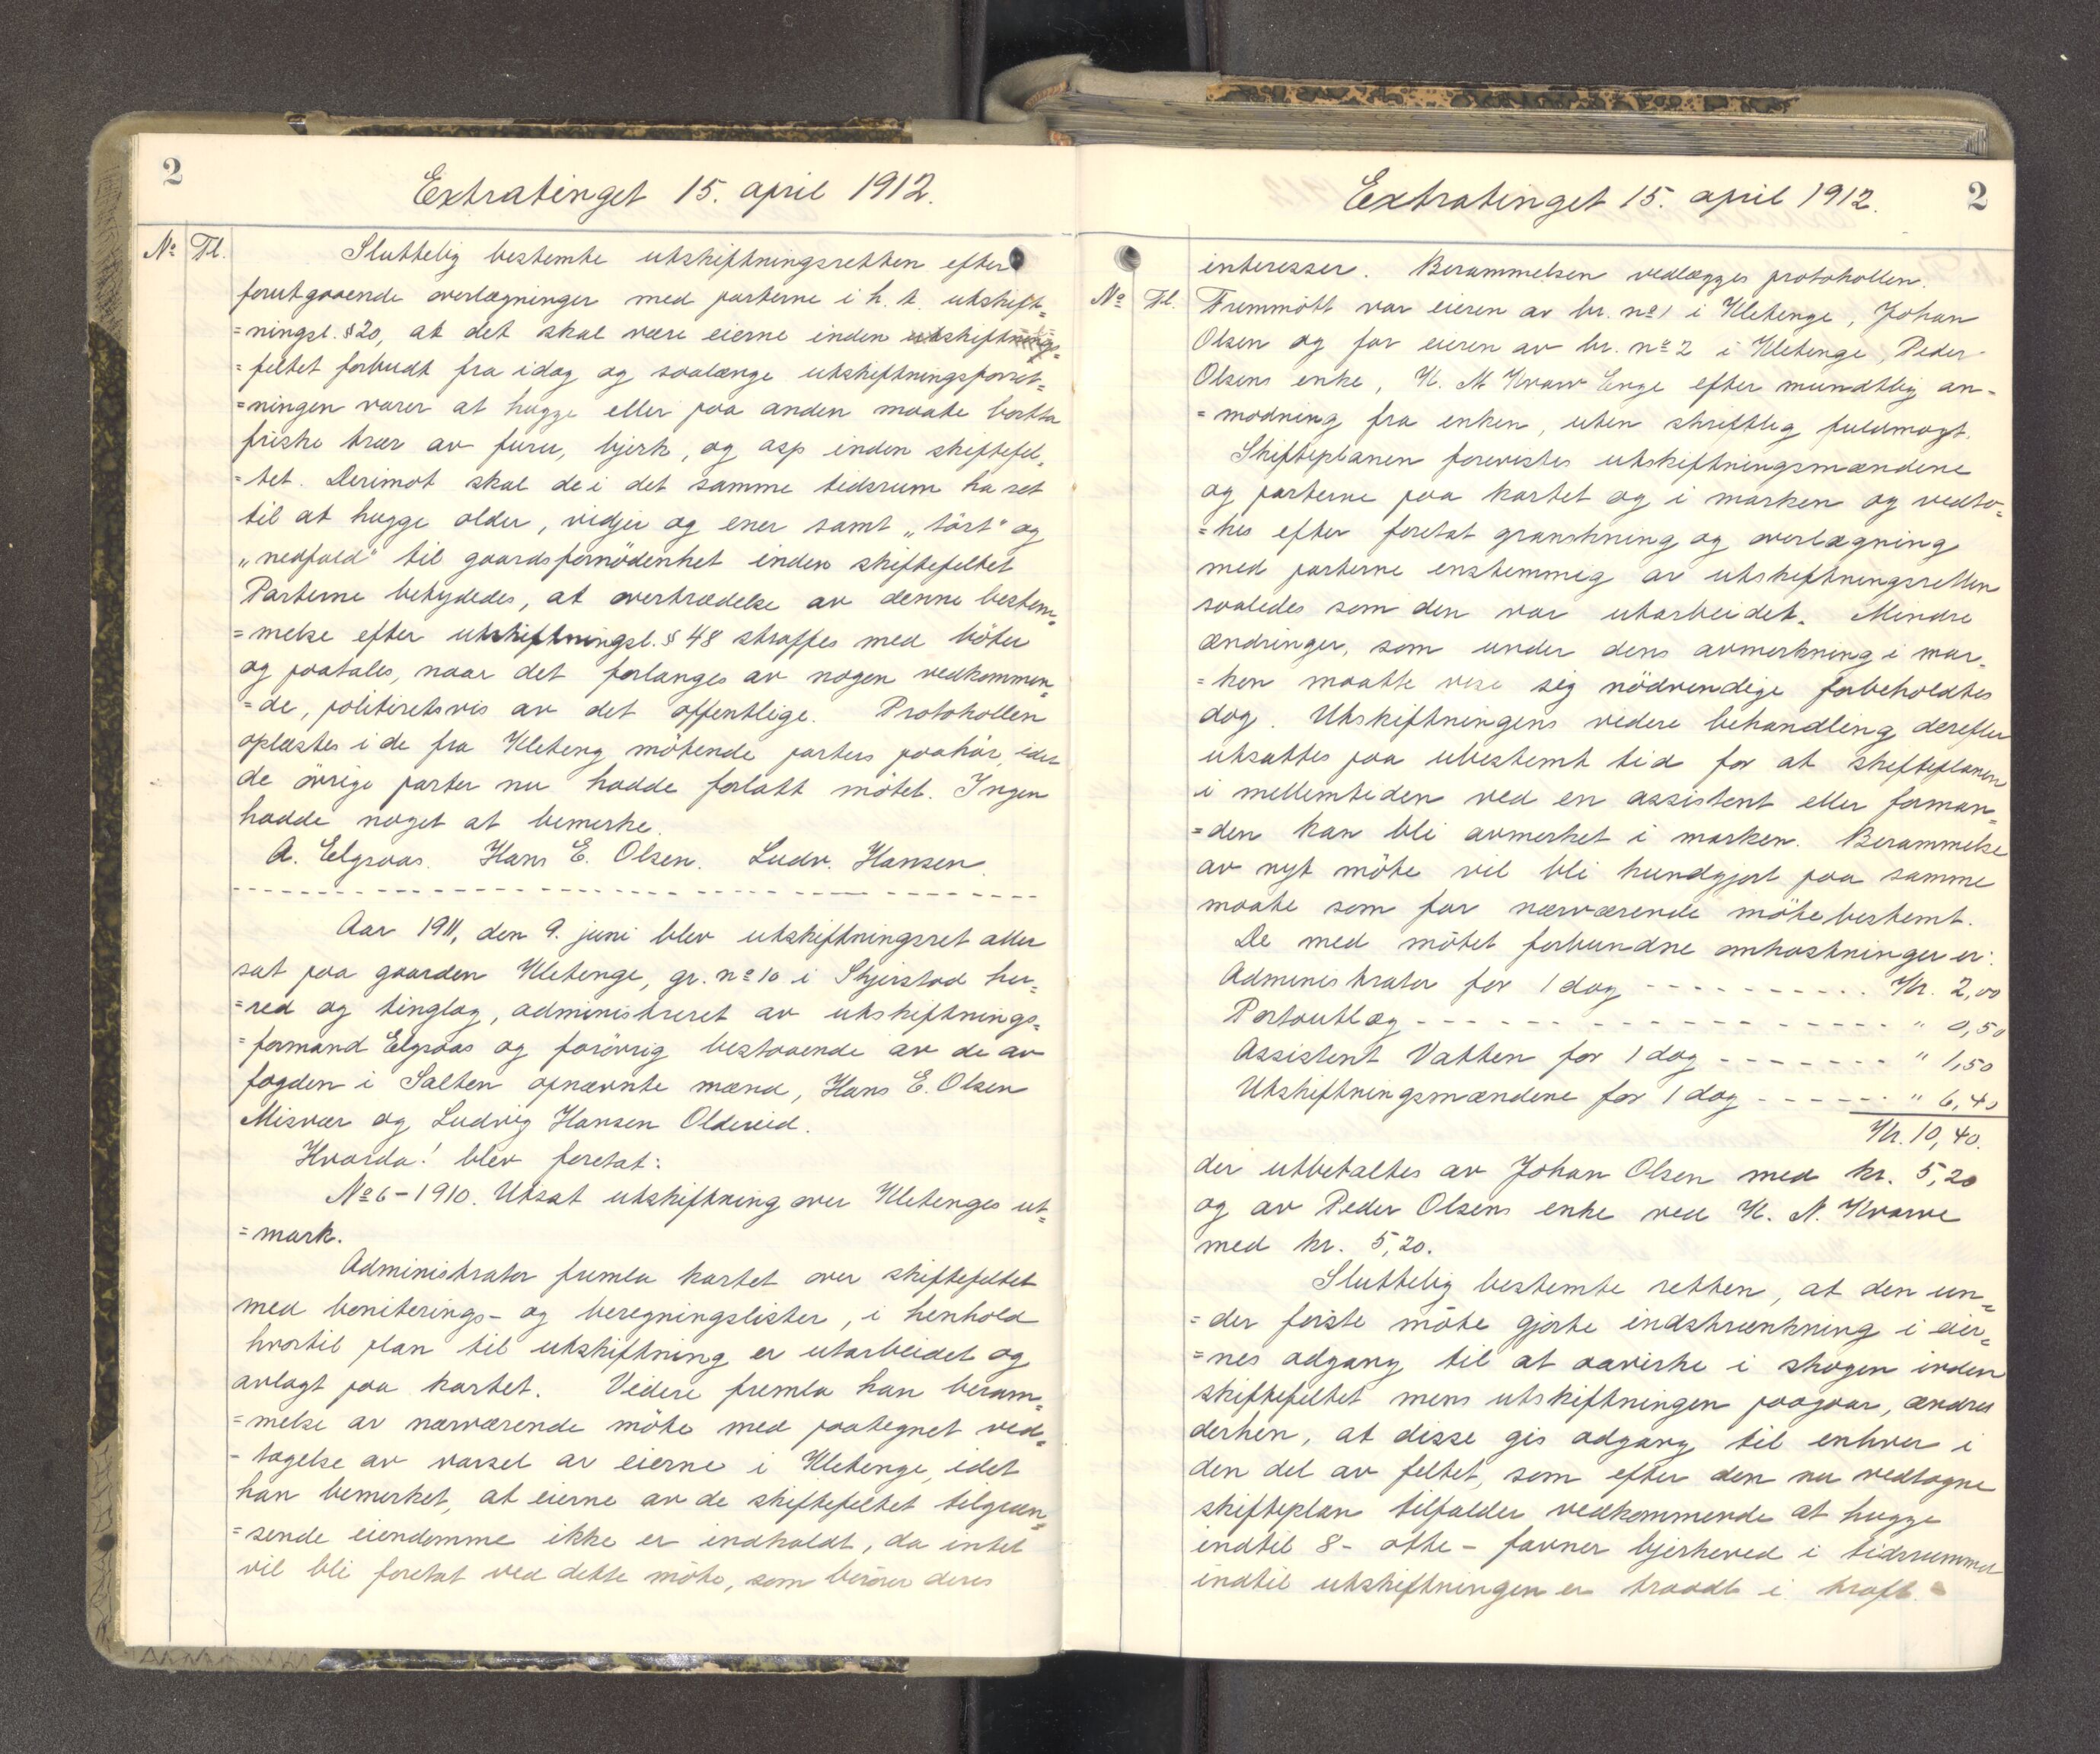 2
Extratinget 15. april 1912.
No Fl.
Sluttelig bestemte utskiftningsretten efter
forutgaaende overlægninger med parterne i h. t. utskift-
=ningsl. §20, at det skal være eierne inden utskiftnings=
=feltet forbudt fra idag og saalænge utskiftningsforret=
=ningen varer at hugge eller paa anden maate bortta
friske trær av furu, bjerk, og asp inden skiftefel=
=tet. Derimot skal de i det samme tidsrum ha ret
til at hugge older, vidjer og ener samt „tört" og
„nedfald" til gaardsfornödenhet inden skiftefeltet
Parterne betydedes, at overtrædelse av denne bestem=
=melse efter utskiftningsl. § 48 straffes med böter
og paatales, naar det forlanges av nogen vedkommen=
=de, politiretsvis av det offentlige. Protokollen
oplæstes i de fra Kleteng mötende parters paahör, idet
de övrige parter nu hadde forlatt mötet. Ingen
hadde noget at bemerke.
A. Elgsaas. Hans E. Olsen. Ludv. Hansen.
Aar 1911, den 9. juni blev utskiftningsret atter
sat paa gaarden Kletenge, gr. no 10 i Skjerstad her=
=red og tinglag, administreret av utskiftnings=
=formand Elgsaas og forövrig bestaaende av de av
fogden i Salten opnævnte mænd, Hans E. Olsen
Misvær og Ludvig Hansen Oldereid.
Hvorda! blev foretat:
No 6-1910. Utsat utskiftning over Kletenges ut=
=mark.
Administrator fremla kartet over skiftefeltet
med boniterings- og beregningslister, i henhold
hvortil plan til utskiftning er utarbeidet og
avlagt paa kartet. Videre fremla han beram=
=melse av nærværende möte med paategnet ved=
-tagelse av varsel av eierne i Kletenge, idet
han bemerket, at eierne av de skiftefeltet tilgræn=
=sende eiendomme ikke er indkaldt, da intet
vil bli foretat ved dette möte, som berörer deres
Extratinget 15. april 1912.
2
No Fl.
interesser. Berammelsen vedlægges protokollen.
Fremmött var eieren av br. no 1 i Kletenge, Johan
Olsen og for eieren av br. no 2 i Kletenge, Peder
Olsens enke, K. M Kvarv Enge efter mundtlig an-
=modning fra enken, uten skriftlig fuldmagt.
Skifteplanen forevistes utskiftningsmændene
og parterne paa kartet og i marken og vedto=
=kes efter foretat granskning og overlægning
med parterne enstemmig av utskiftningsretten
saaledes som den var utarbeidet. Mindre
ændringer, som under dens avmerkning i mar-
=ken maatte vise sig nödvendige forbeholdtes
dog. Utskiftningens videre behandling derefter
utsattes paa ubestemt tid for at skifteplanen
i mellemtiden ved en assistent eller forman=
=den kan bli avmerket i marken. Berammelse
av nyt möte vil bli kundgjort paa samme
maate som for nærværende möte bestemt.
De med mötet forbundne omkostninger er:
Administrator for 1 dag - - - - - - - - - - Kr. 2,00
Portoutlæg - - - - - - - - - - - - - - - - " 0,50
Assistent Vatten for 1 dag - - - - - - - " 1,50
Utskiftningsmændene for 1 dag - - - - - - " 6,40
Kr. 10,40.
der utbetaltes av Johan Olsen med kr. 5,20
og av Peder Olsens enke ved K. N. Kvarve
med kr. 5,20.
Sluttelig bestemte retten, at den un=
=der förste möte gjorte indskrænkning i eier=
=nes adgang til at aavirke i skogen inden
skiftefeltet mens utskiftningen paagaar, ændres
derhen, at disse gis adgang til enhver i
den del av feltet, som efter den nu vedtagne
skifteplan tilfalder vedkommende at hugge
indtil 8- otte - favner bjerkeved i tidsrummet
indtil utskiftningen er traadt i kraft.